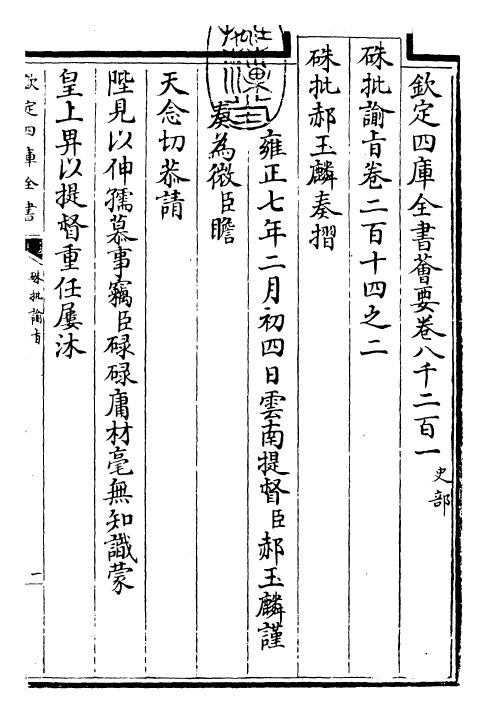 欽定四庫全書薈要卷八千二百一
史部
硃批諭旨卷二百十四之二
硃批郝玉麟奏摺
雍正七年二月初四日雲南提督臣郝玉麟謹
奏為微臣瞻
天念切恭請
陛見以伸孺慕事竊臣碌碌庸材毫無知識蒙
皇上畀以提督重任屢沐
欽定四庫全書
硃批諭旨